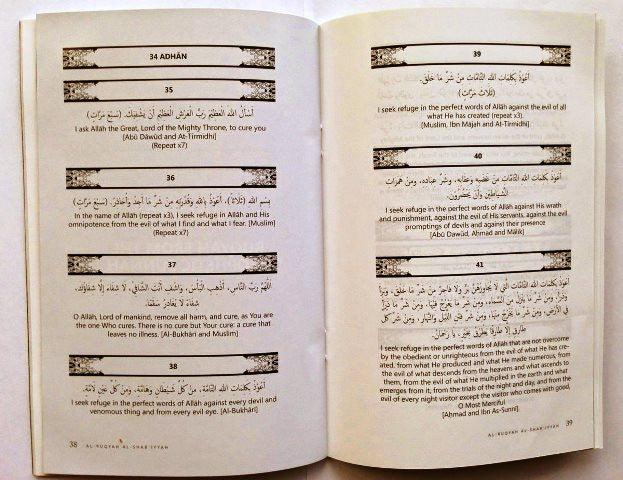 34 ADHĀN
35
أَسْأَلُ اللهَ الْعَظِيمَ رَبَّ الْعَرْشِ الْعَظِيمِ أَنْ يَشْفِيَكَ. (سَبْعَ مَرَّاتٍ)
I ask Allāh the Great, Lord of the Mighty Throne, to cure you
[Abū Dāwūd and At-Tirmidhi]
(Repeat x7)
36
بِسْمِ اللهِ (ثَلَاثًا). أَعُوذُ بِاللهِ وَقُدْرَتِهِ مِنْ شَرِّ مَا أَجِدُ وَأُحَاذِرُ. (سَبْعَ مَرَّاتٍ)
In the name of Allāh (repeat x3), I seek refuge in Allāh and His
omnipotence from the evil of what I find and what I fear. [Muslim]
(Repeat x7)
37
اللَّهُمَّ رَبَّ النَّاسِ، أَذْهِبِ الْبَأْسَ، وَاشْفِ أَنْتَ الشَّافِي، لَا شِفَاءَ إِلَّا شِفَاؤُكَ،
شِفَاءً لَا يُغَادِرُ سَقَمًا.
O Allāh, Lord of mankind, remove all harm, and cure, as You are
the one Who cures. There is no cure but Your cure: a cure that
leaves no illness. [Al-Bukhāri and Muslim]
38
أَعُوذُ بِكَلِمَاتِ اللهِ التَّامَّةِ، مِنْ كُلِّ شَيْطَانٍ وَهَامَّةٍ، وَمِنْ كُلِّ عَيْنٍ لَامَّةٍ.
I seek refuge in the perfect words of Allāh against every devil and
venomous thing and from every evil eye. [Al-Bukhāri]
38 AL-RUQYAH AL-SHAR'IYYAH
39
أَعُوذُ بِكَلِمَاتِ اللهِ التَّامَّاتِ مِنْ شَرِّ مَا خَلَقَ.
(ثَلَاثَ مَرَّاتٍ)
I seek refuge in the perfect words of Allāh against the evil of all
what He has created (repeat x3).
[Muslim, Ibn Mājah and At-Tirmidhi]
40
أَعُوذُ بِكَلِمَاتِ اللهِ التَّامَّاتِ مِنْ غَضَبِهِ وَعِقَابِهِ، وَشَرِّ عِبَادِهِ، وَمِنْ هَمَزَاتِ
الشَّيَاطِينِ وَأَنْ يَحْضُرُونِ.
I seek refuge in the perfect words of Allāh against His wrath
and punishment, against the evil of His servants, against the evil
promptings of devils and against their presence
[Abū Dawūd, Ahmad and Mālik]
41
أَعُوذُ بِكَلِمَاتِ اللهِ التَّامَّاتِ الَّتِي لَا يُجَاوِزُهُنَّ بَرٌّ وَلَا فَاجِرٌ مِنْ شَرِّ مَا خَلَقَ، وَبَرَأَ
وَذَرَأَ، وَمِنْ شَرِّ مَا يَنْزِلُ مِنَ السَّمَاءِ، وَمِنْ شَرِّ مَا يَعْرُجُ فِيهَا، وَمِنْ شَرِّ مَا ذَرَأَ
فِي الْأَرْضِ، وَمِنْ شَرِّ مَا يَخْرُجُ مِنْهَا، وَمِنْ شَرِّ فِتَنِ اللَّيْلِ وَالنَّهَارِ، وَمِنْ شَرِّ كُلِّ
طَارِقٍ إِلَّا طَارِقًا يَطْرُقُ بِخَيْرٍ، يَا رَحْمَانُ.
I seek refuge in the perfect words of Allāh that are not overcome
by the obedient or unrighteous from the evil of what He has cre-
ated, from what He produced and what He made numerous, from
the evil of what descends from the heavens and what ascends to
them, from the evil of what He multiplied in the earth and what
emerges from it, from the trials of the night and day, and from the
evil of every night visitor except the visitor who comes with good,
O Most Merciful
[Ahmad and Ibn As-Sunni]
AL-RUQYAH AL-SHAR'IYYAH 39